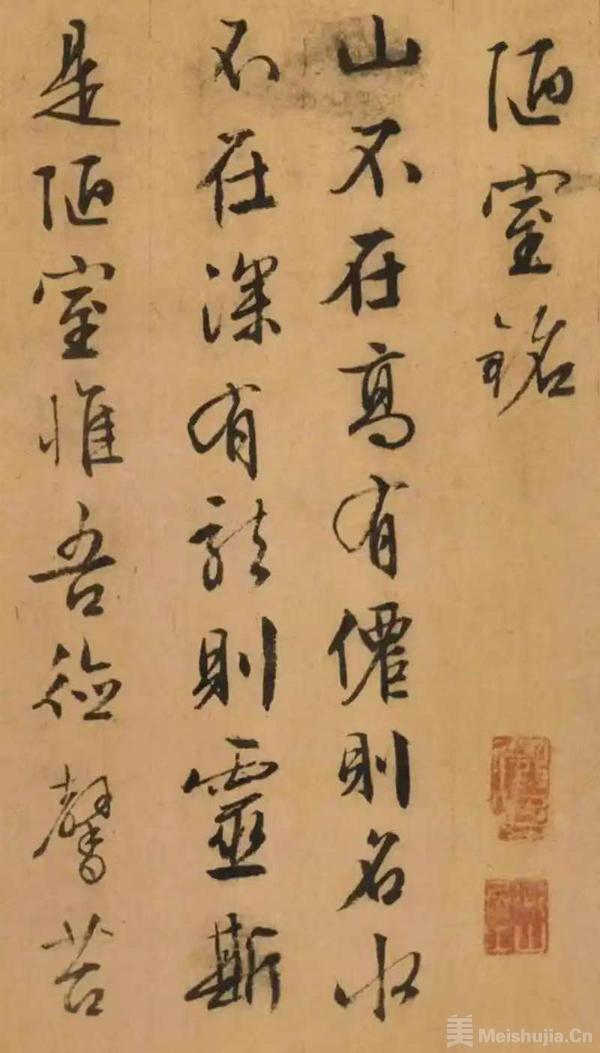 陋室銘
山不在高有僊則名水
不在深有龍則靈斯
是陋室惟吾德馨苔
美 Meishujia.Cn